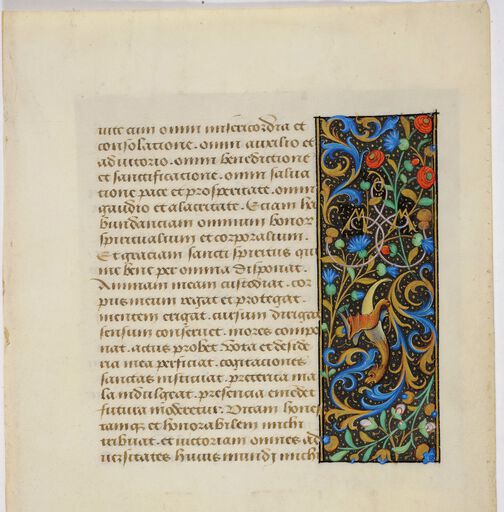 uite cum omni misericordia et
consolatione . omni auxilio et
adiutorio . omni benedictione
et sanctificatione . omni salua
tione pace et prosperitate . omni
gaudio et alacritate . Etiam ha
bundanciam omnium honor
spiritualium et corporalium .
Et graciam sancti spiritus qui
me bene per omnia disponat .
Animam meam custodiat . cor
pus meum regat et protegat .
mentem erigat . cursum dirigat
sensum conseruet . mores compo
nat . actus probet . vota et deside
ria mea perficiat . cogitaciones
sanctas instituat . preterita ma
la indulgeat . presencia emedet
futura moderetur . Vitam hones
tamqz et honorabilem michi
tribuat . et victoriam omnes ad
uersitates huius mundi michi